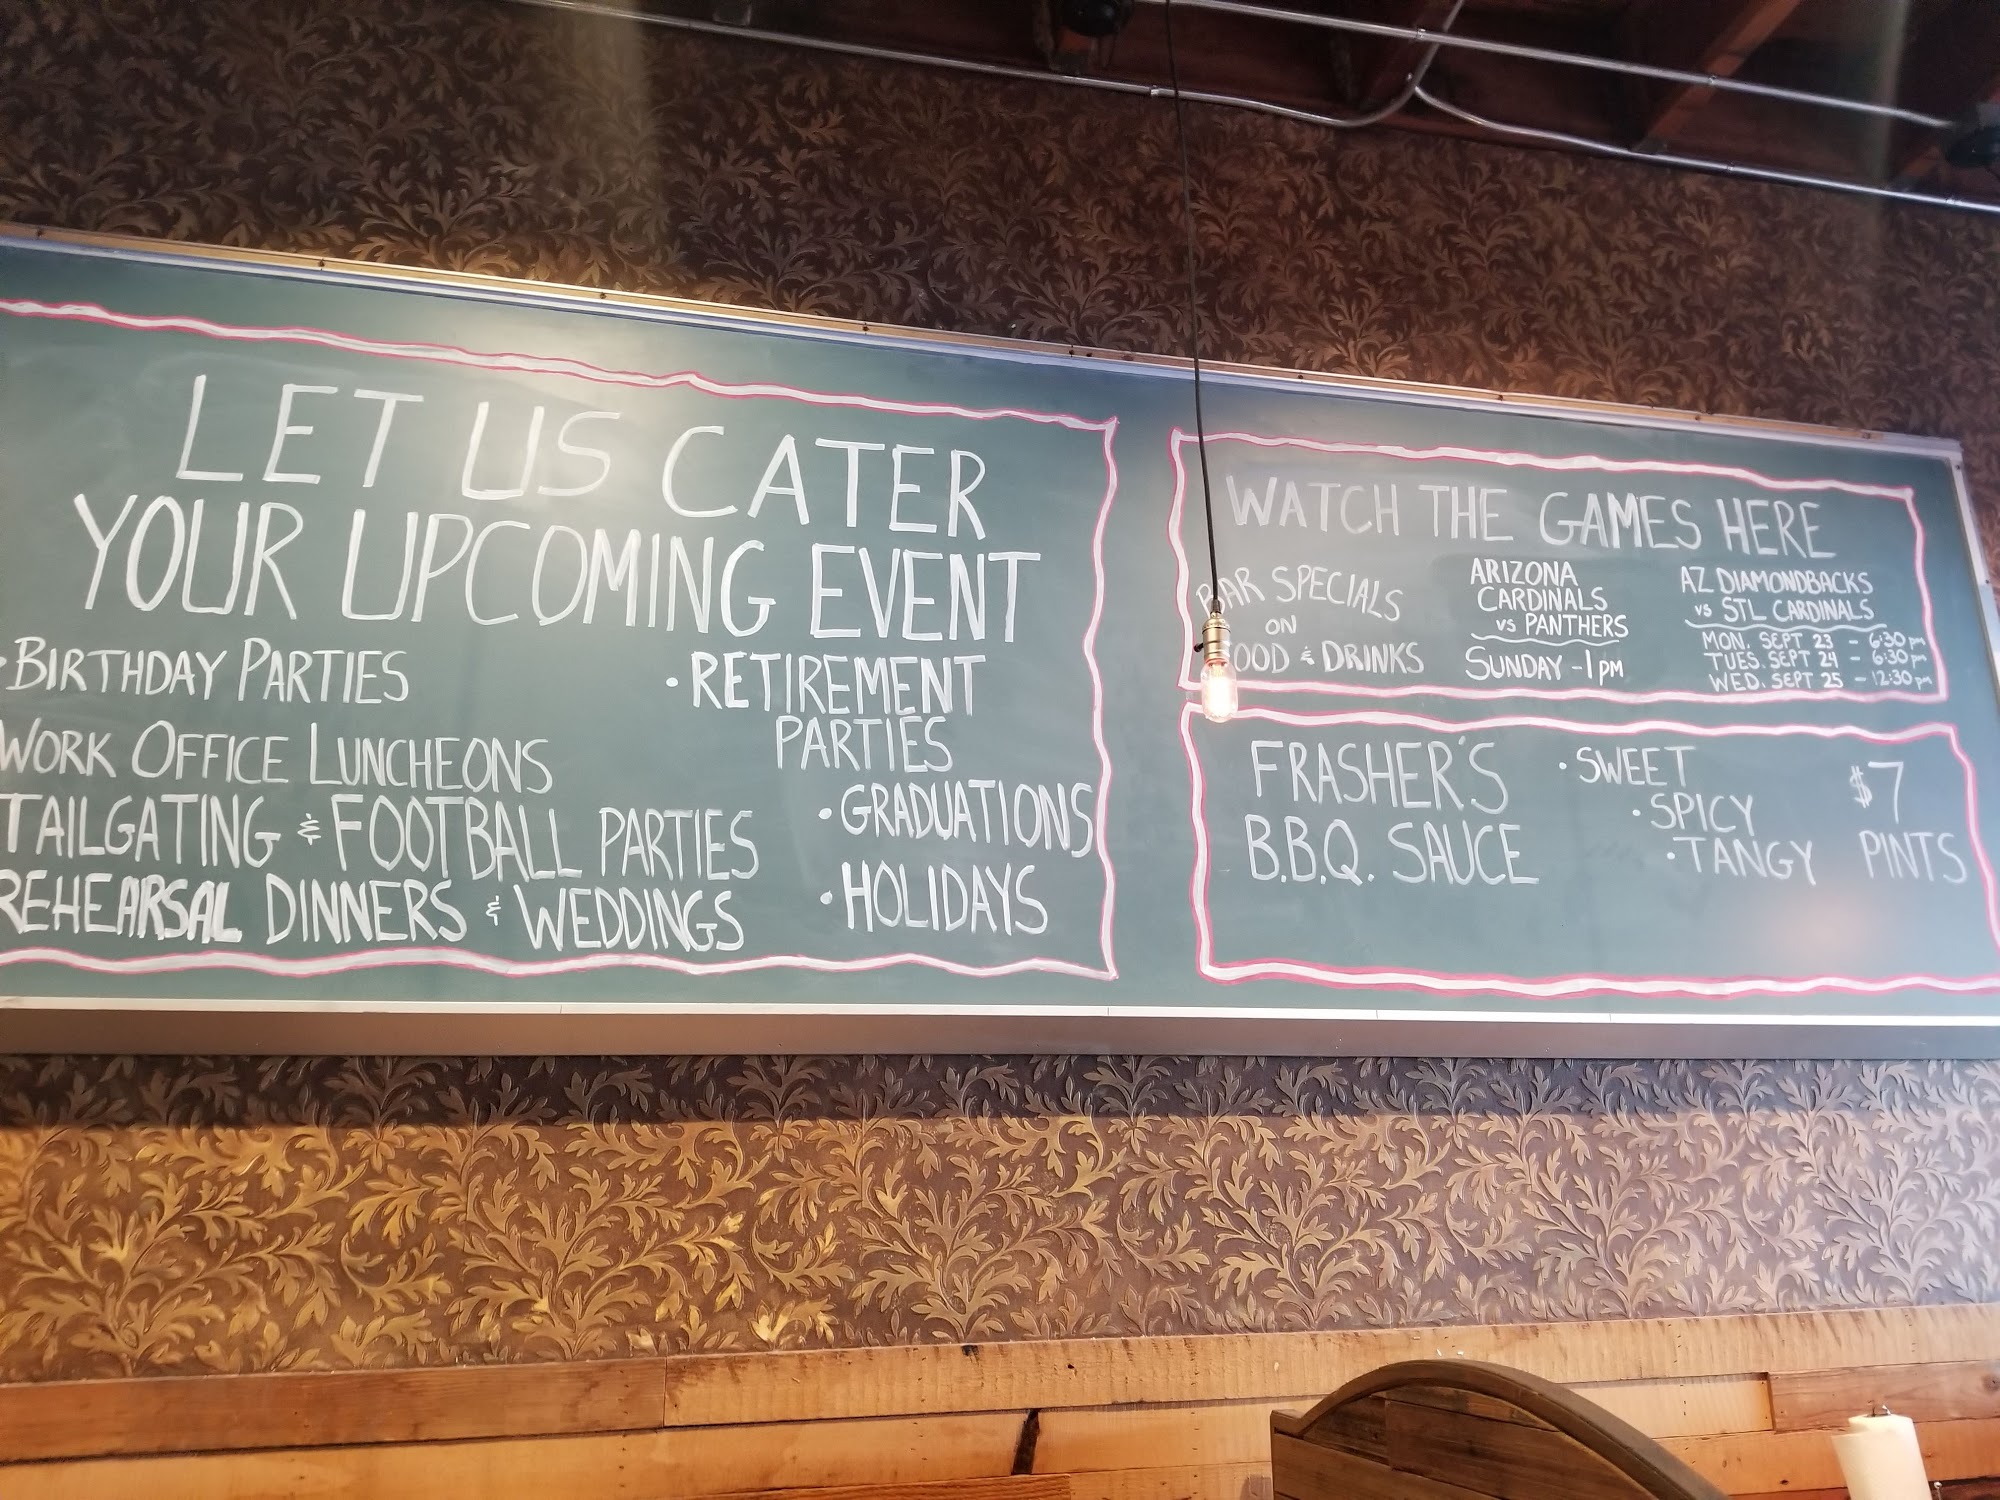 LET US CATER
YOUR UPCOMING EVENT
• BIRTHDAY PARTIES
WORK OFFICE LUNCHEONS
TAILGATING & FOOTBALL PARTIES
REHEARSAL DINNERS & WEDDINGS
• RETIREMENT
PARTIES
• GRADUATIONS
• HOLIDAYS
WATCH THE GAMES HERE
BAR SPECIALS
ON
FOOD & DRINKS
ARIZONA
CARDINALS
VS PANTHERS
SUNDAY - 1 PM
AZ DIAMONDBACKS
VS STL CARDINALS
MON. SEPT 23 - 6:30 pm
TUES. SEPT 24 - 6:30 pm
WED. SEPT 25 - 12:30 pm
FRASHER'S
B.B.Q. SAUCE
• SWEET
• SPICY
• TANGY
$7
PINTS